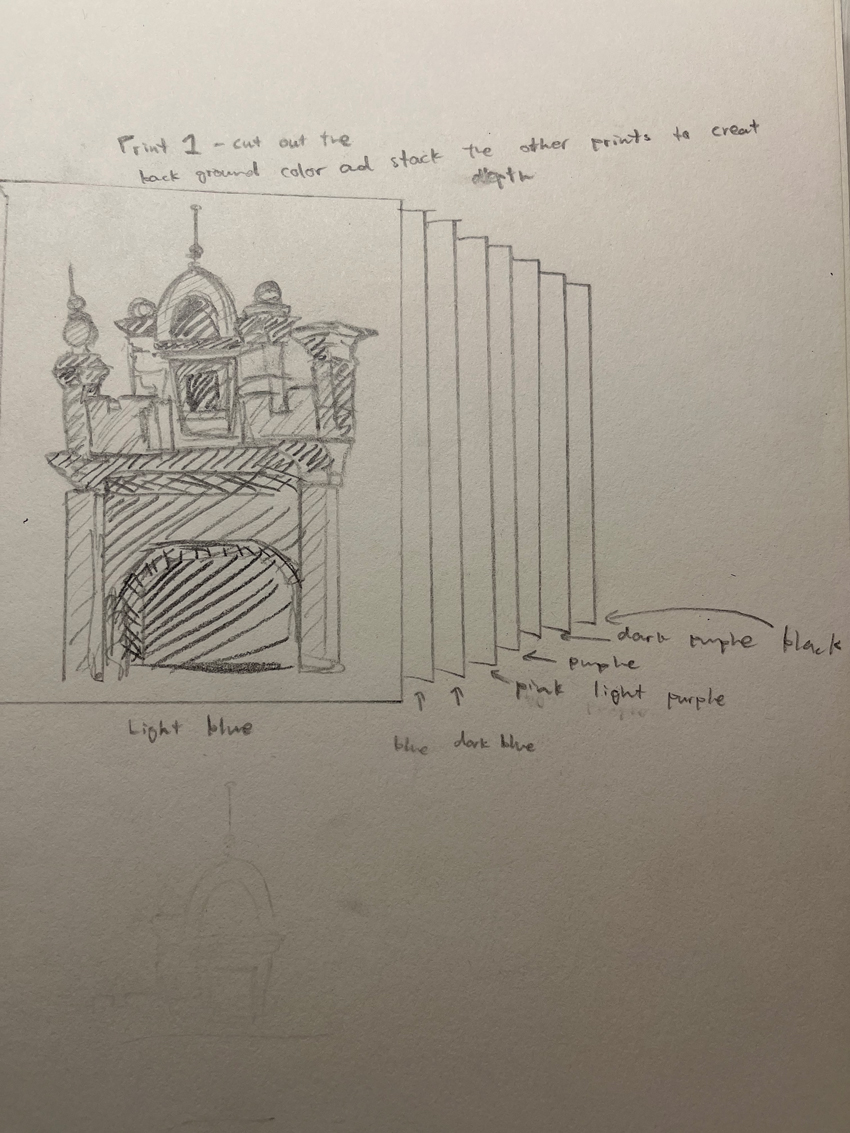 Print 1 - cut out the
back ground color ad stack the other prints to creat
depth
dark purple black
purple
pink light purple
Light blue
blue dark blue